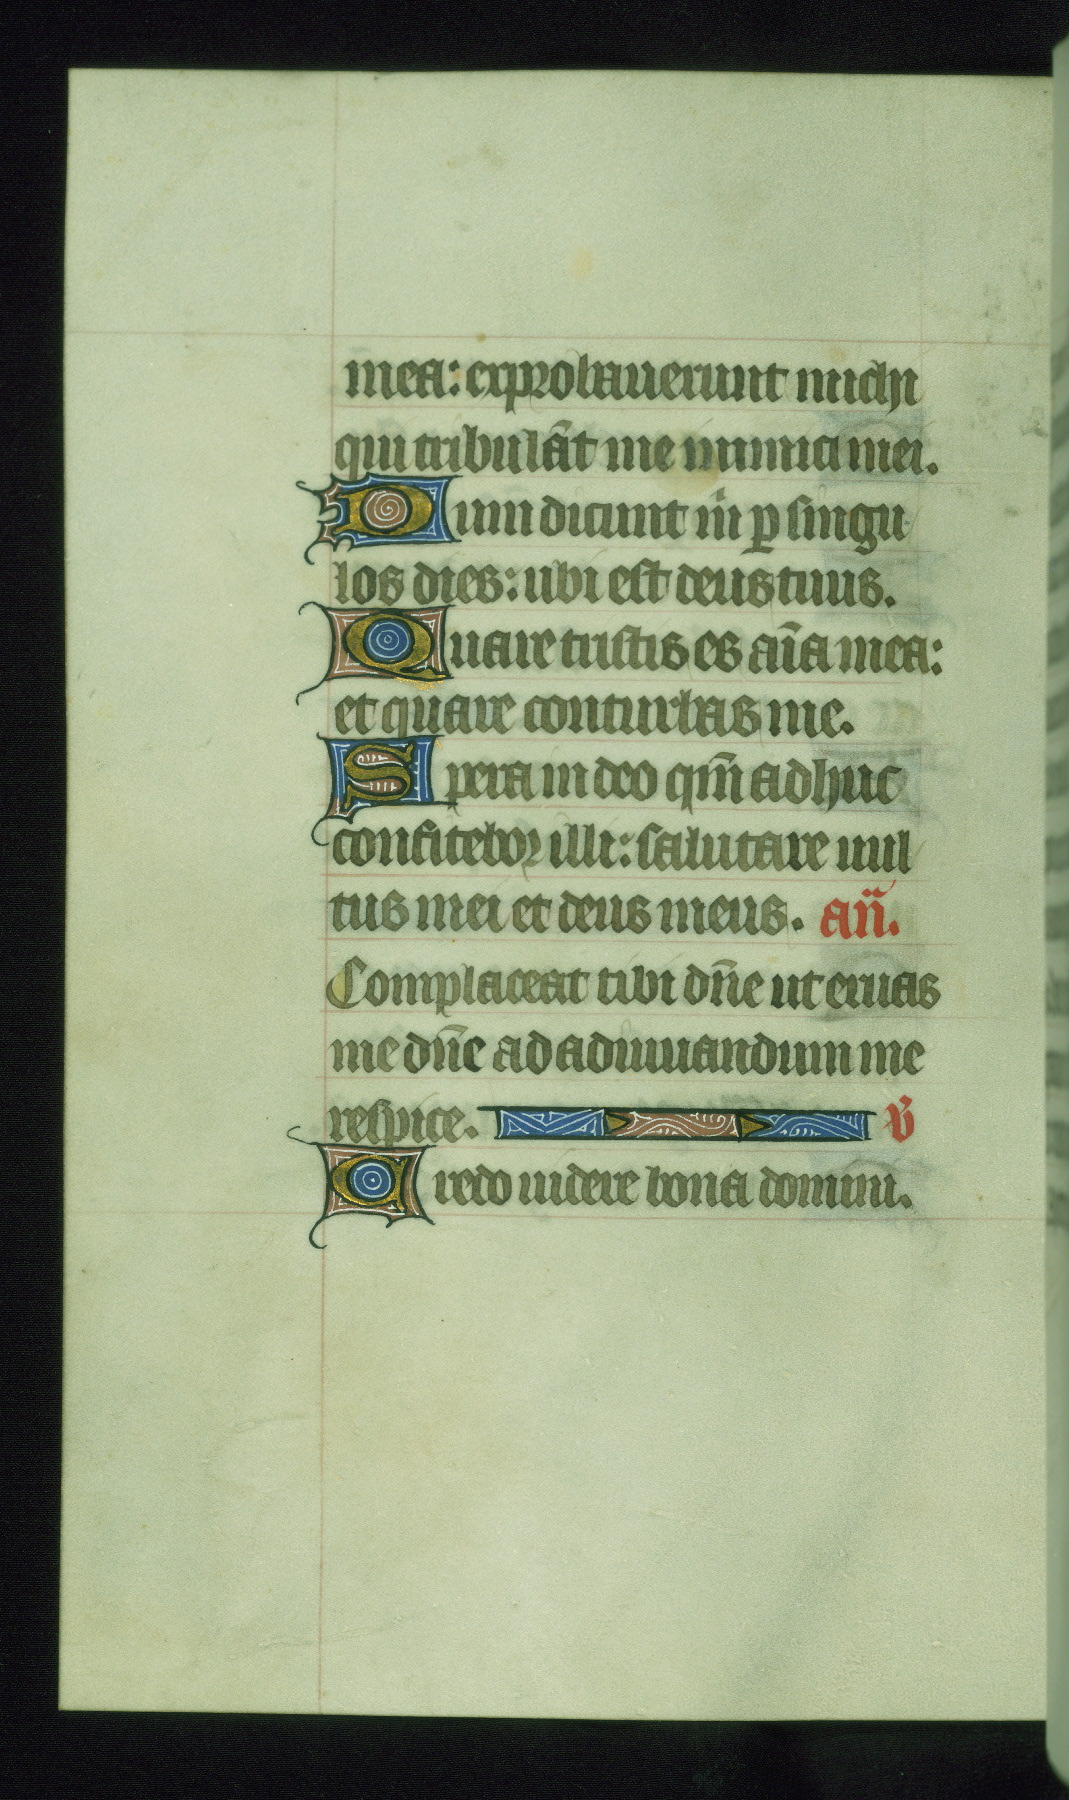 mea: exprobauerunt michi
qui tribulāt me inimici mei.
Dum dicunt m̄ ꝑ singu
los dies: ubi est deus tuus.
Quare tristis es aīa mea:
et quare conturbas me.
Spera in deo qm̄ adhuc
confitebor illi: salutare uul
tus mei et deus meus. an̄.
Complaceat tibi dn̄e ut eruas
me dn̄e ad adiuuandum me
respice. ℣
Credo uidere bona domini.